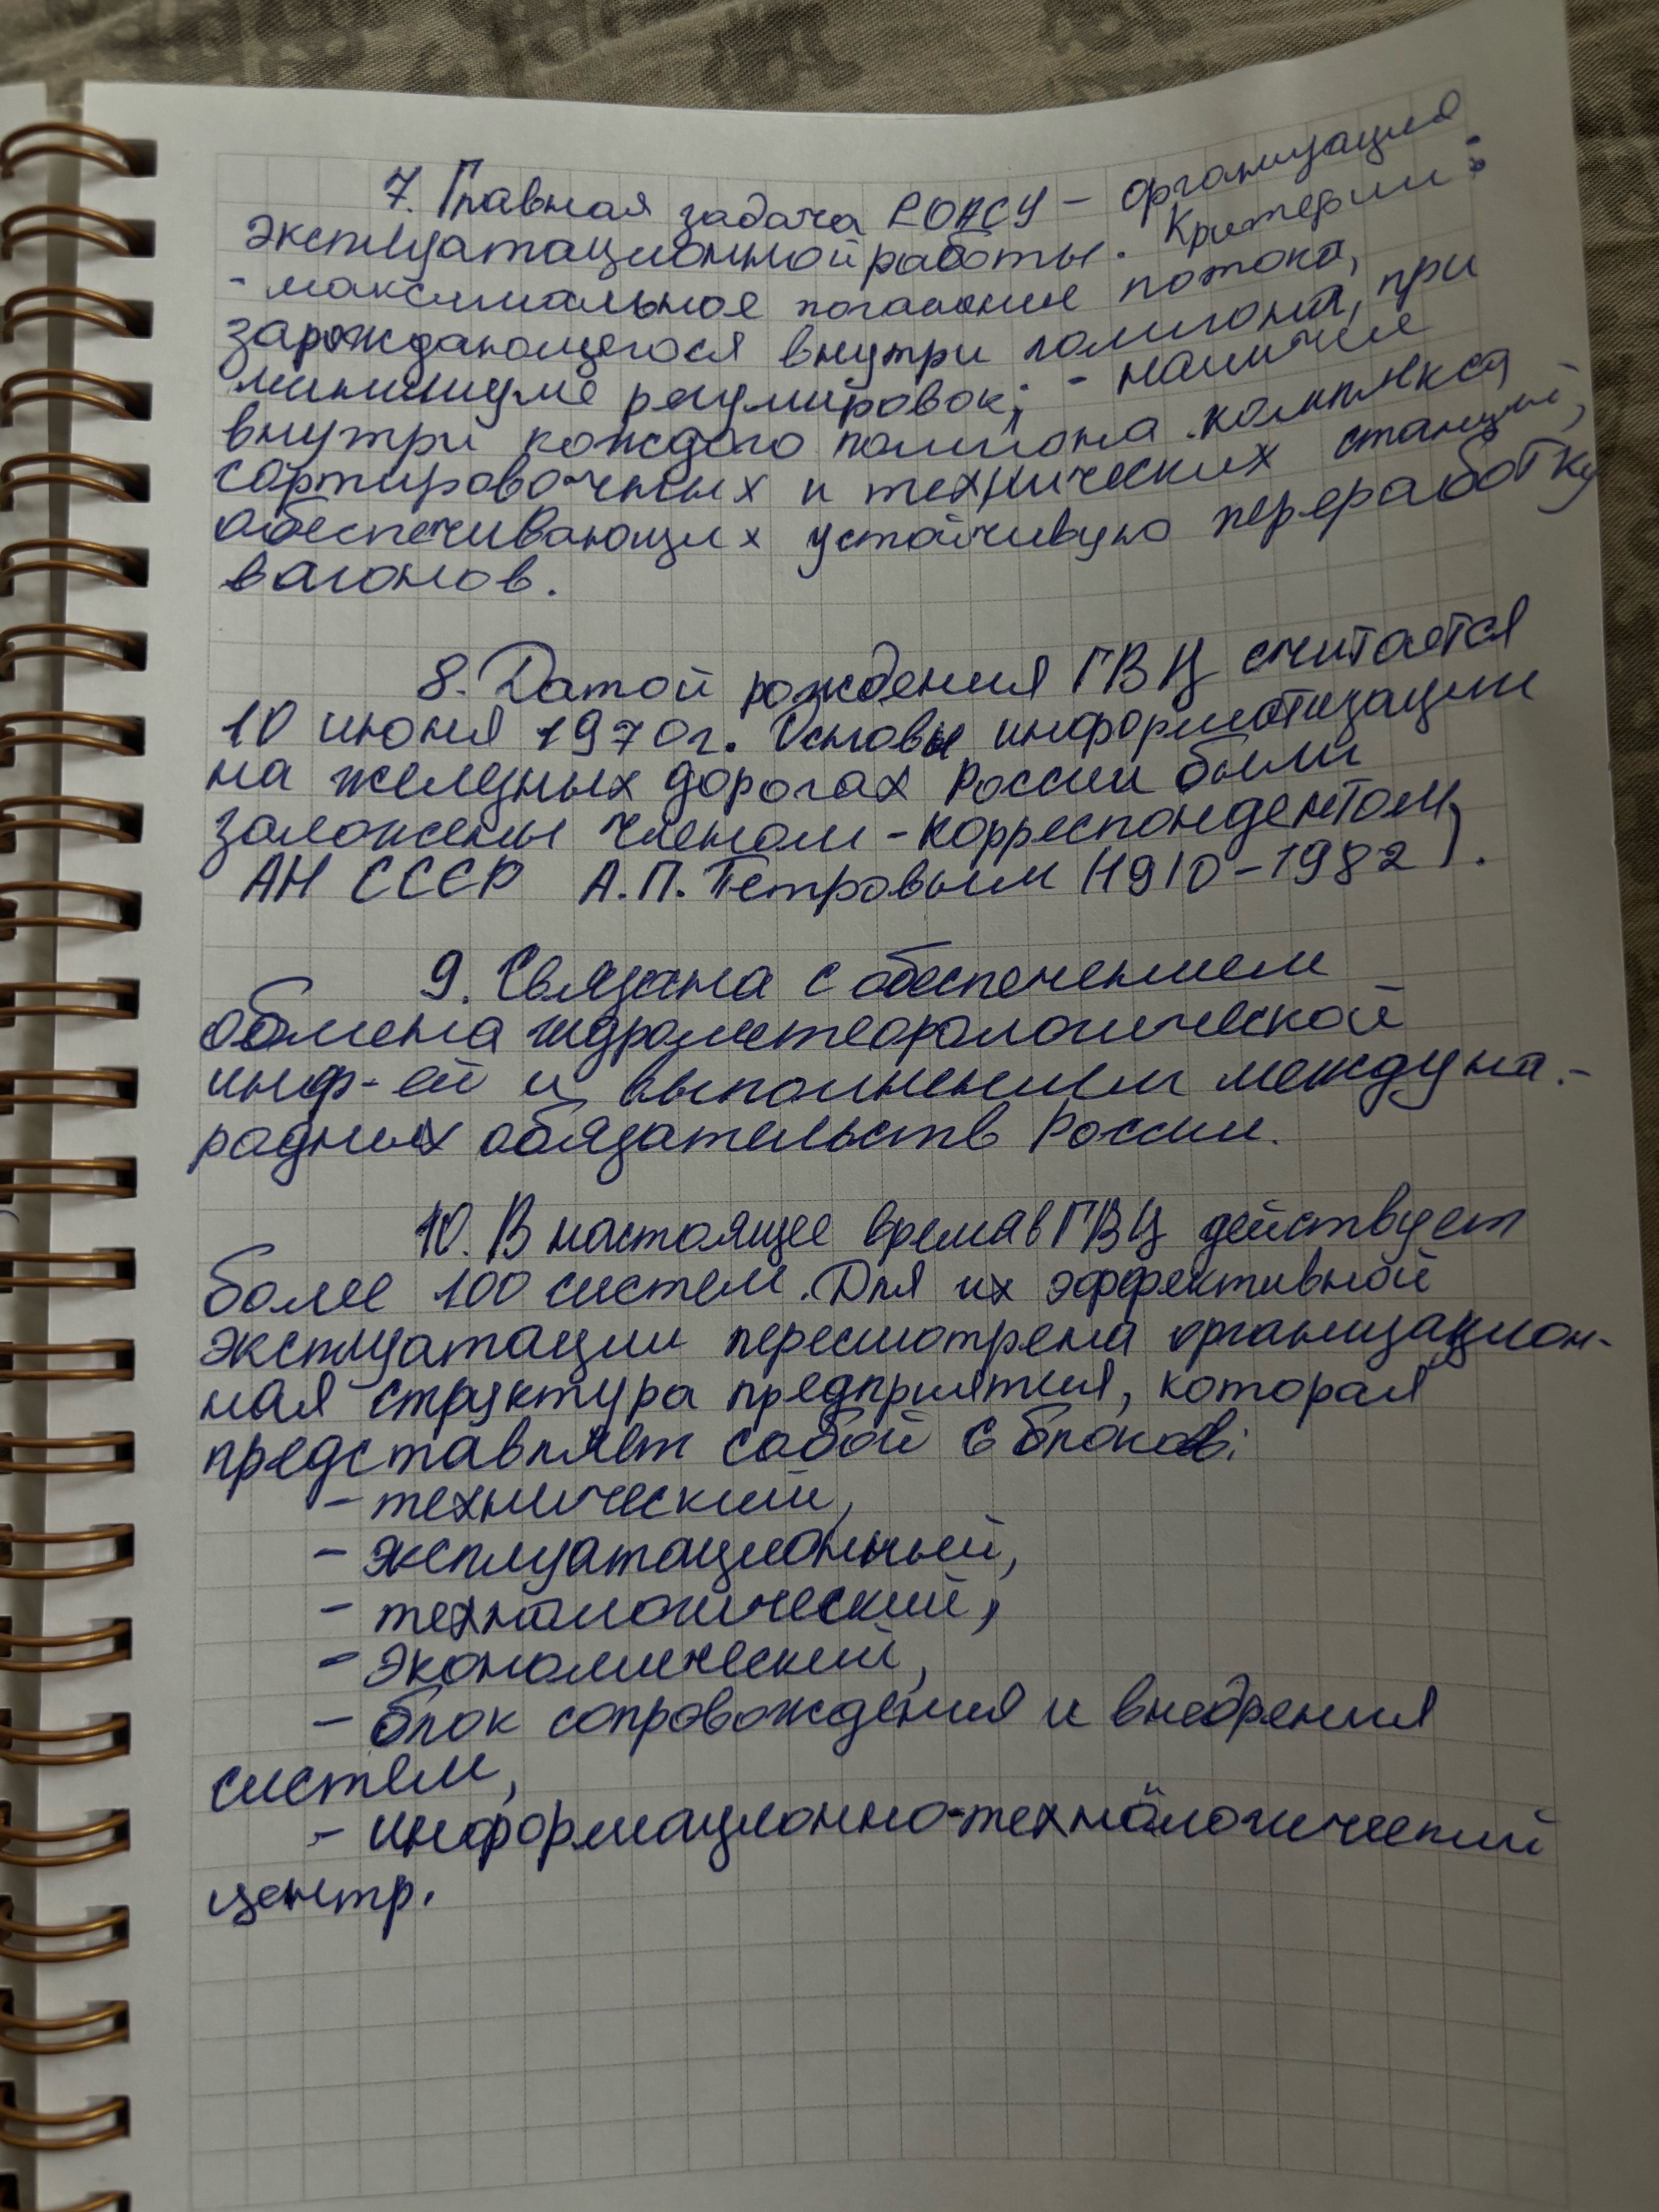 7. Главная задача РОАСУ – организация
эксплуатационной работы. Критерии:
- максимальное погашение потока,
зарождающегося внутри полигона, при
минимуме регулировок; - наличие
внутри каждого полигона комплекса
сортировочных и технических станций,
обеспечивающих устойчивую переработку
вагонов.
8. Датой рождения ГВЦ считается
10 июня 1970г. Основы информатизации
на железных дорогах России были
заложены членом-корреспондентом
АН СССР А.П. Петровым (1910-1982).
9. Связана с обеспечением
обмена гидрометеорологической
инф-ей и выполнением междуна-
родных обязательств России.
10. В настоящее время в ГВЦ действует
более 100 систем. Для их эффективной
эксплуатации пересмотрена организацион-
ная структура предприятия, которая
представляет собой 6 блоков:
- технический,
- эксплуатационный,
- технологический,
- экономический,
- блок сопровождения и внедрения
систем,
- информационно-технологический
центр.